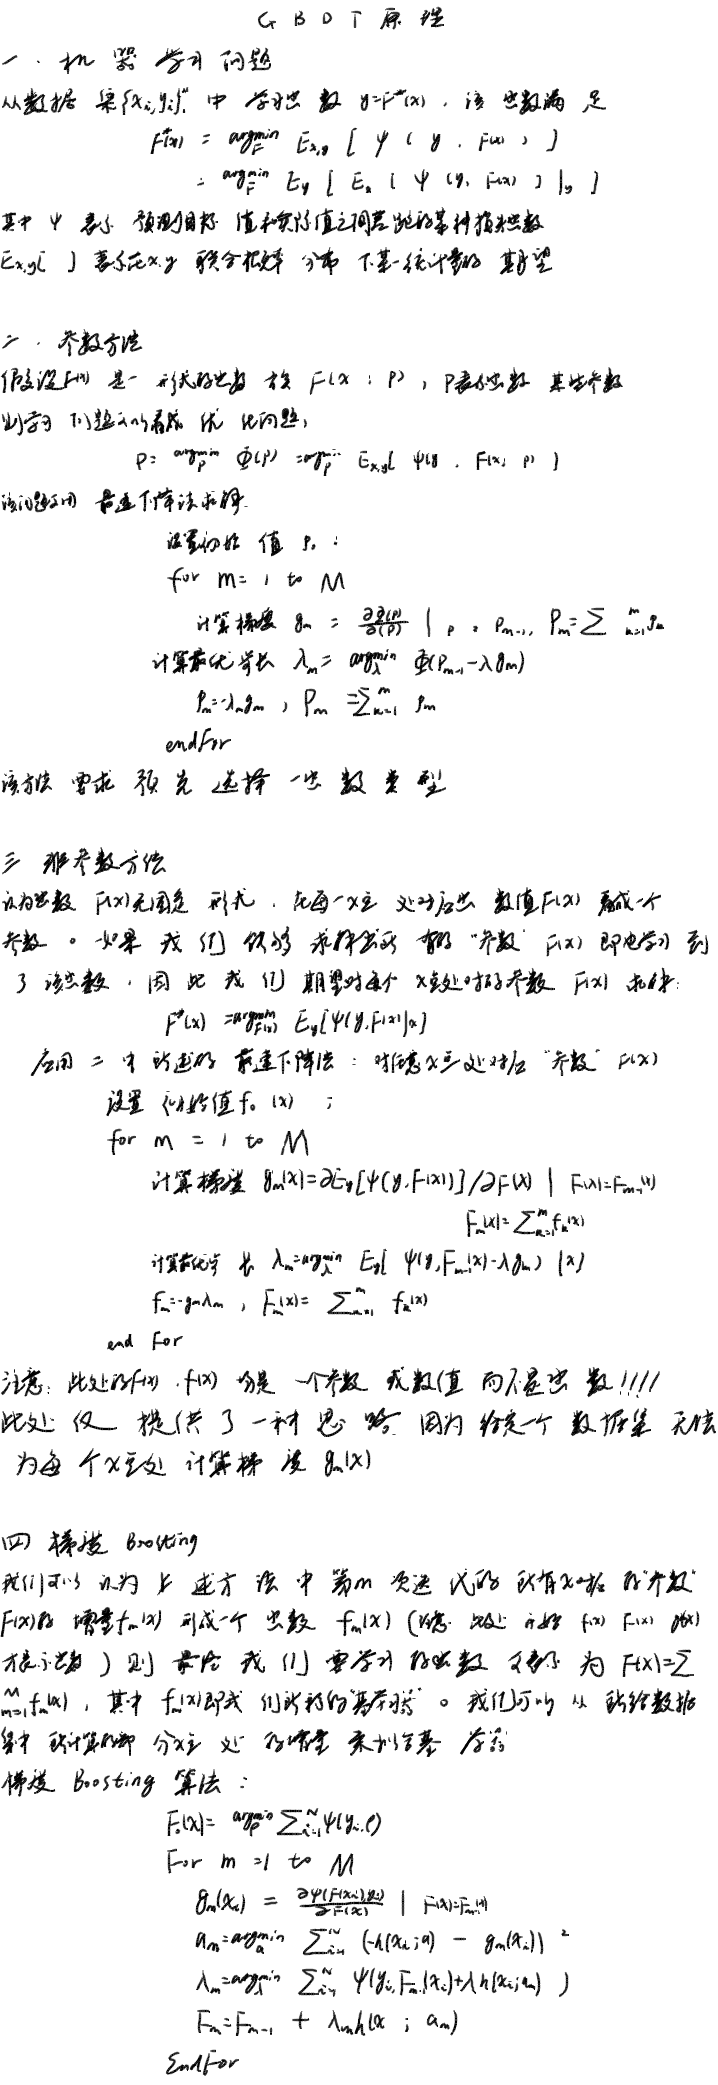 GBDT原理
一. 机器学习问题
从数据集{xi,yi}₁ⁿ中学习出函数 y=F*(x), 该函数满足
F*(x) = argmin_F E_{x,y} [ψ(y, F(x))]
= argmin_F E_y [E_x (ψ(y, F(x)) |_y ]
其中ψ表示预测目标值和实际值之间差距的某种损失函数
E_{x,y}[ ]表示在x,y联合概率分布下某一统计量的期望
二. 参数方法
假设F(x)是一形式的函数族F(x;P), P表示函数某些参数
则学习问题可以看成优化问题;
P = argmin_P Φ(P) = argmin_P E_{x,y}[ψ(y, F(x;P)]
该问题可用最速下降法求解.
设置初始值 ρ₀:
for m=1 to M
计算梯度 g_m = ∂Φ(P)/∂(P) | P=P_{m-1}, P_m=∑_{k=1}^m ρ_k
计算最优步长 λ_m = argmin_λ Φ(P_{m-1}-λg_m)
ρ_m=-λ_m g_m, P_m=∑_{k=1}^m ρ_m
endfor
该方法要求预先选择一函数类型
三 非参数方法
认为函数F(x)无固定形式, 在每一x点处对应函数值F(x)看成一个
参数。如果我们能够求解出所有的“参数”F(x)即也学习到
了该函数, 因此我们期望对每个x点处对的参数F(x)求解:
F*(x) = argmin_{F(x)} E_y[ψ(y,F(x)|x]
应用二中所述的最速下降法: 对任意x点处对应“参数”F(x)
设置初始值f₀(x);
for m = 1 to M
计算梯度 g_m(x)=∂E_y[ψ(y,F(x))]/∂F(x) | F(x)=F_{m-1}(x)
F_m(x)=∑_{k=1}^m f_k(x)
计算最优步长 λ_m=argmin_λ E_y[ψ(y,F_{m-1}(x)-λg_m) |x]
f_m=-g_mλ_m, F_m(x)= ∑_{k=1}^m f_k(x)
end for
注意: 此处的f(x), F(x)均是一个参数或数值而不是函数!!!!
此处仅提供了一种思路. 因为给定一个数据集无法
为每个x点处计算梯度g_m(x)
四 梯度Boosting
我们可以认为上述方法中第m次迭代的所有x对应的“参数”
F(x)的增量f_m(x)形成一个函数f_m(x)(注意此处开始f(x) F(x) g(x)
才表示函数)则最后我们要学习的函数又表示为F(x)=∑
_{m=1}^M f_m(x), 其中f_m(x)即我们所称的“基学习器”。我们可以从所给数据
集中所计算的部分x点处的增量来拟合基学习器
梯度Boosting算法:
F₀(x)= argmin_ρ ∑_{i=1}^N ψ(y_i,ρ)
For m=1 to M
g_m(x_i) = ∂ψ(F(x_i),y_i)/∂F(x) | F(x)=F_{m-1}(x)
a_m=argmin_a ∑_{i=1}^N (-h(x_i;a) - g_m(x_i))²
λ_m=argmin_λ ∑_{i=1}^N ψ(y_i,F_{m-1}(x_i)+λh(x_i;a_m))
F_m=F_{m-1} + λ_m h(x; a_m)
EndFor